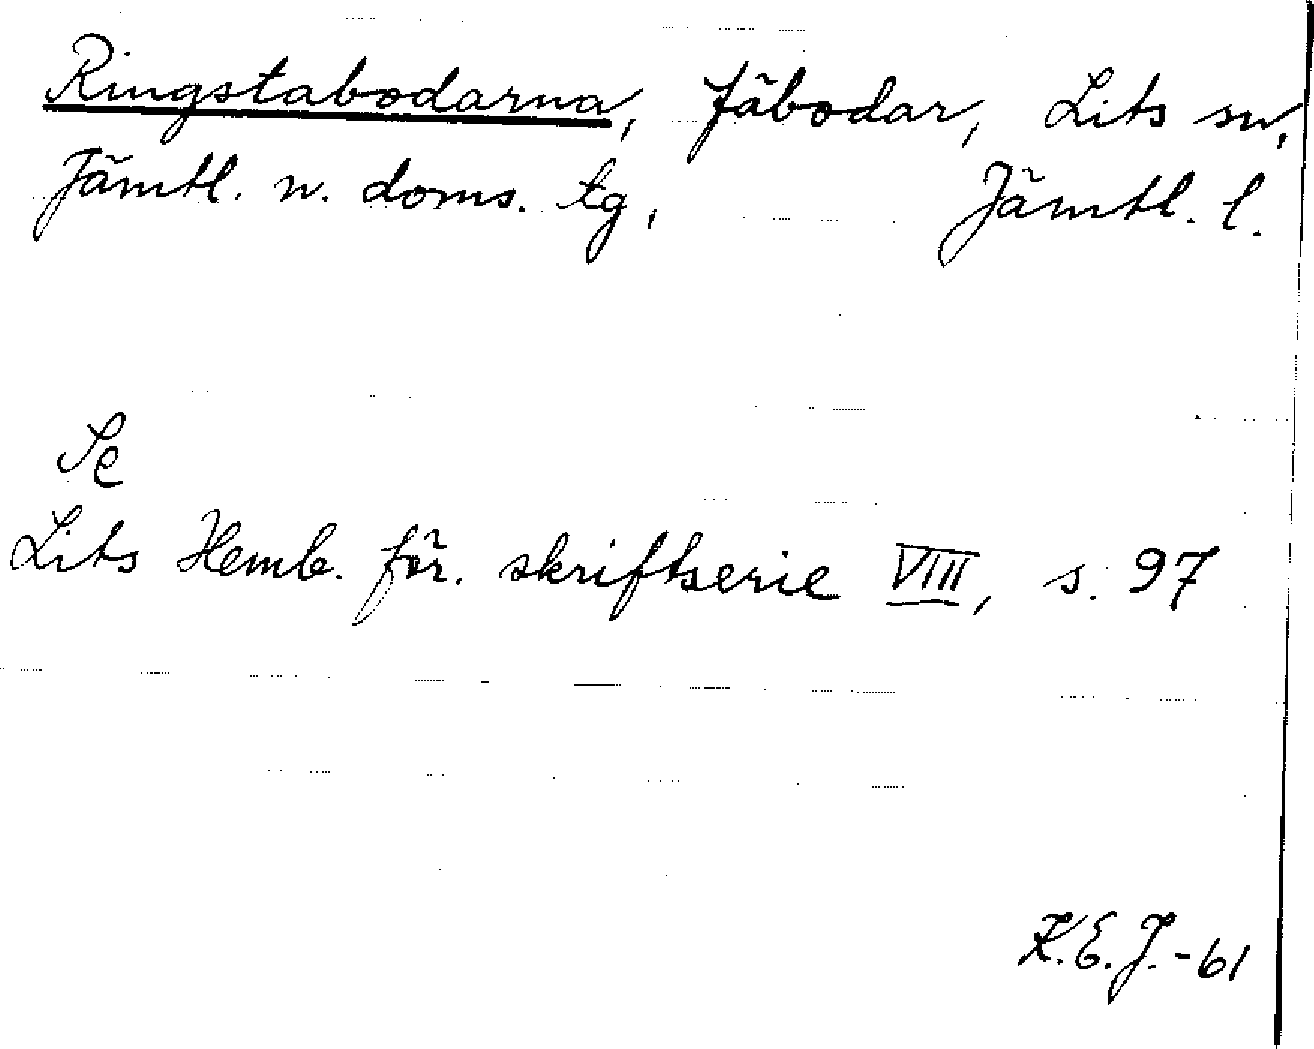 Ringstabodarna, fäbodar, Lits sn,
Jämtl. n. doms. tg, Jämtl. l.
Se
Lits Hemb. för. skriftserie VIII, s. 97
K.E.J.-61